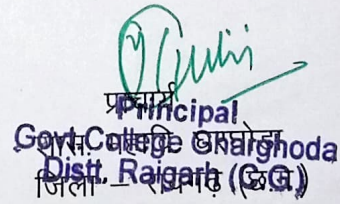 प्राचार्य
Principal
Govt. College Gharghoda
शास. महावि. घरघोड़ा
Distt. Raigarh (C.G.)
जिला – रायगढ़ (छ.ग.)